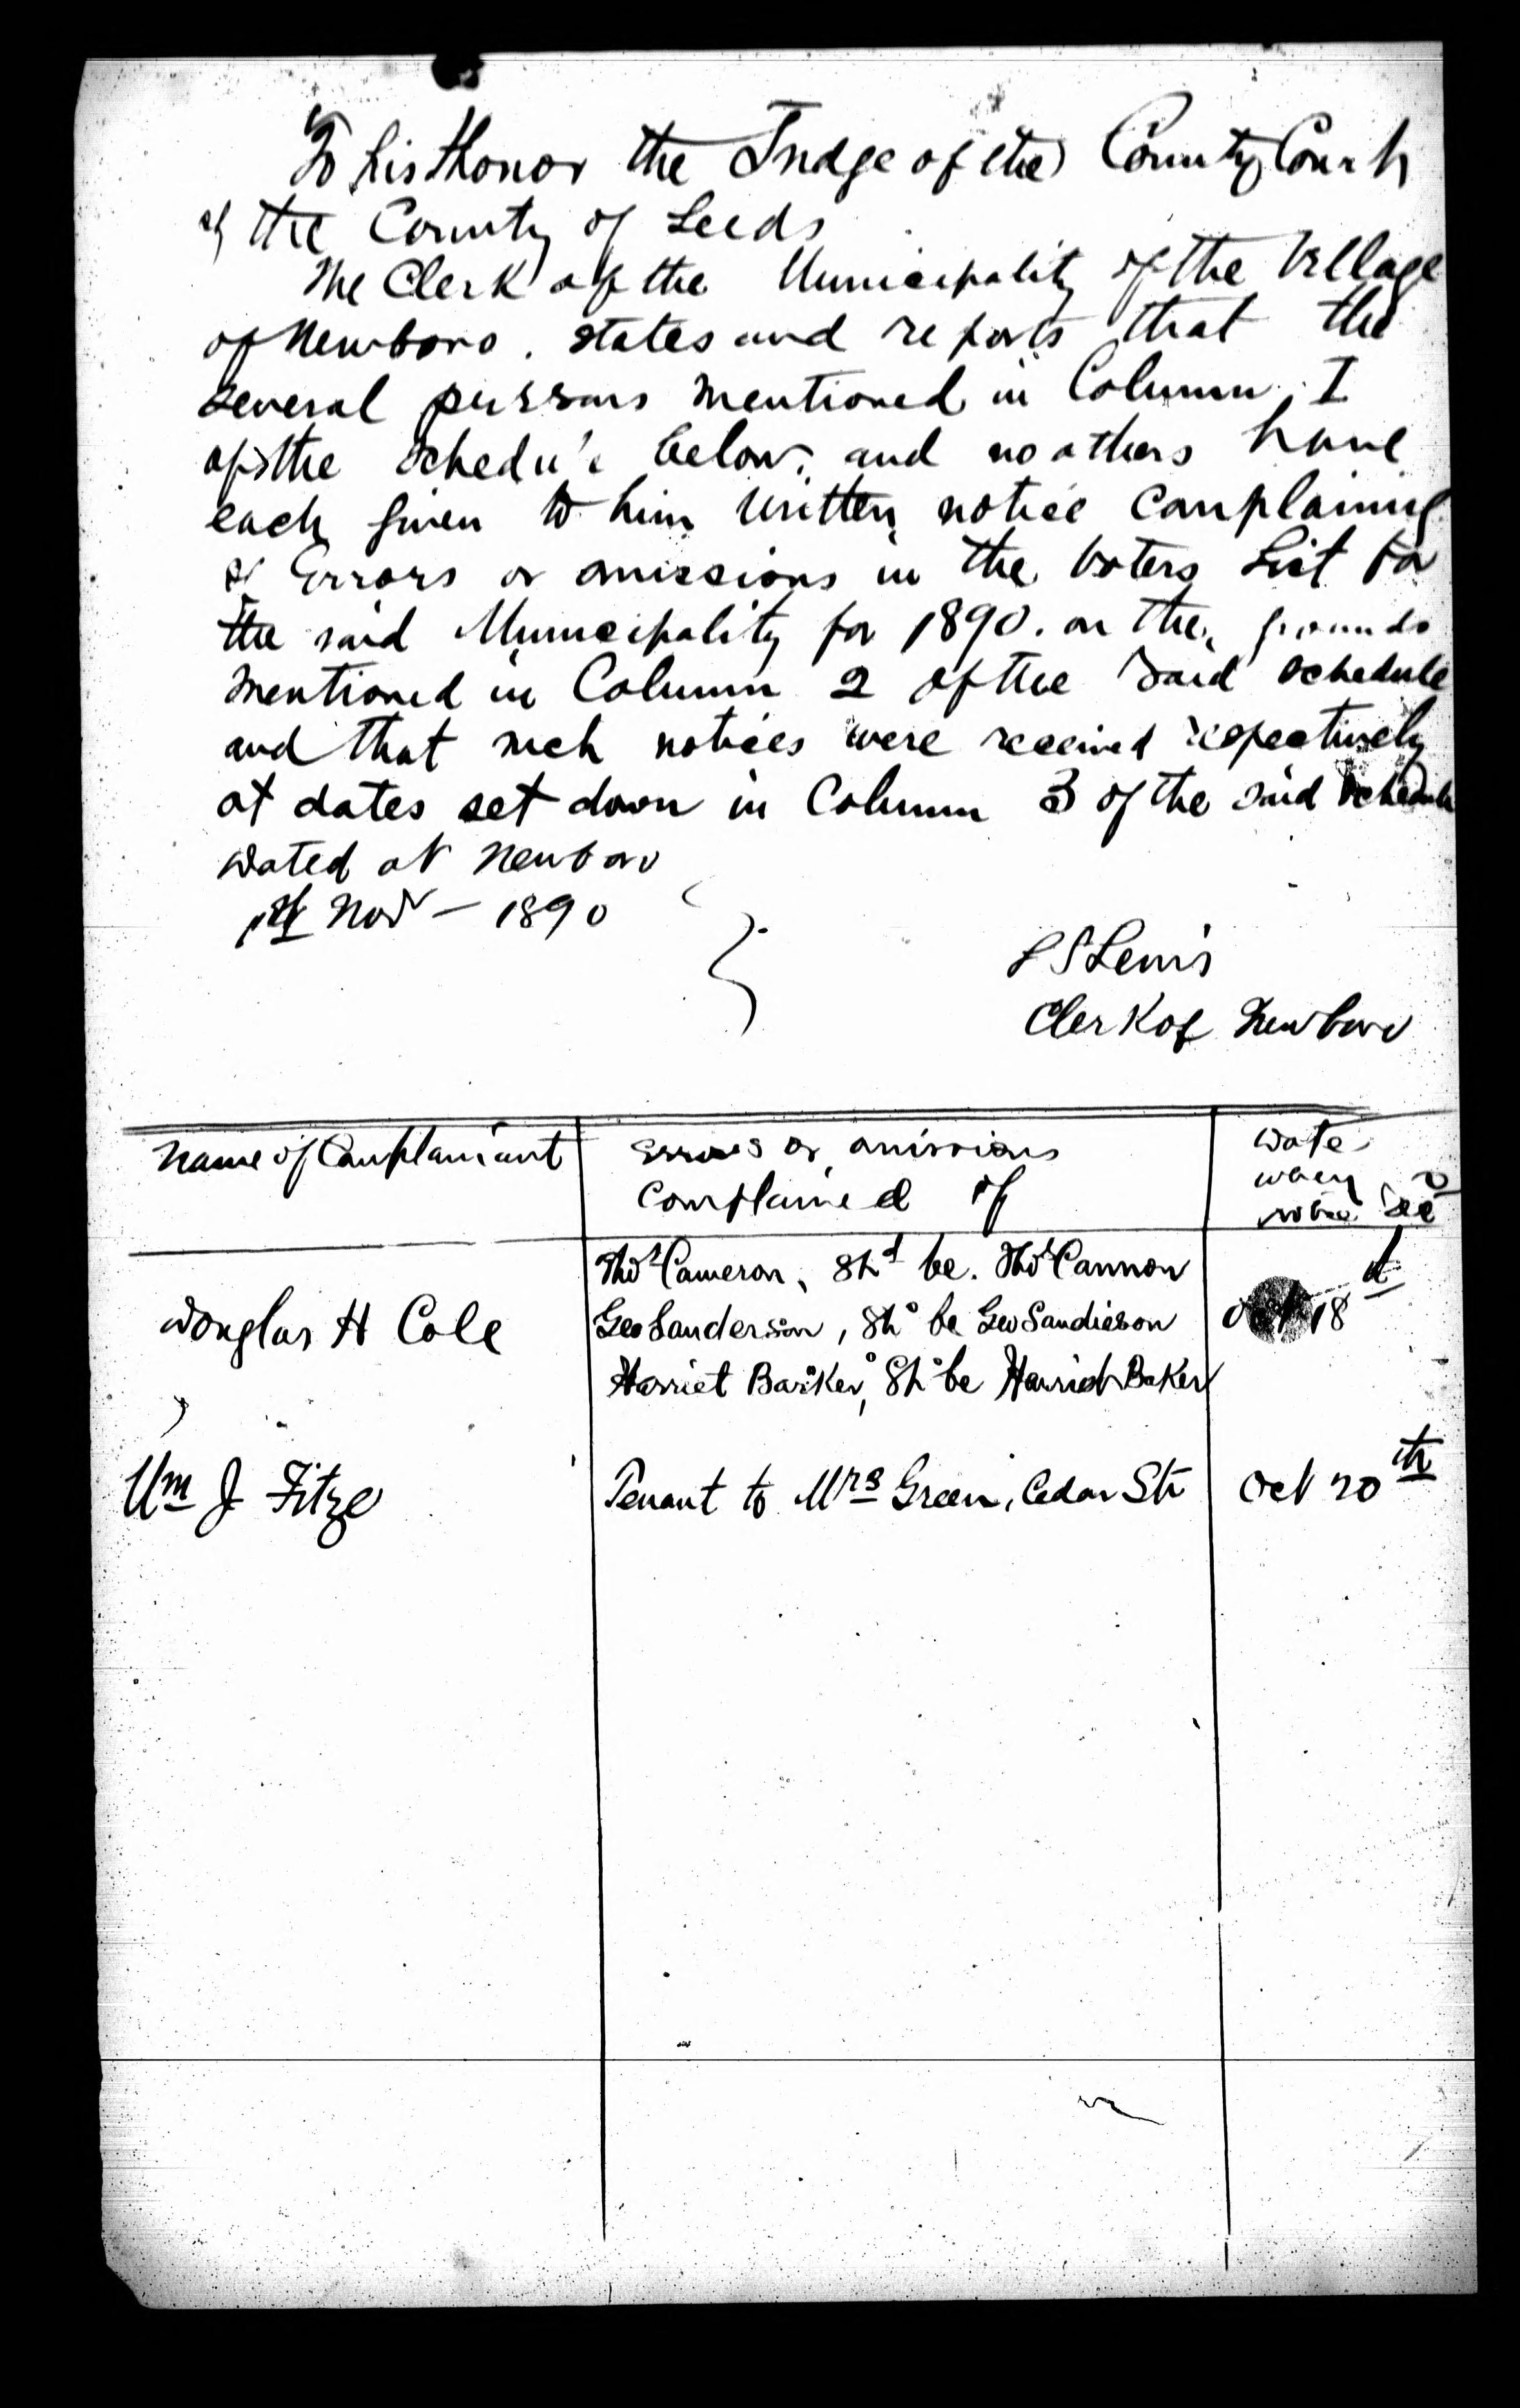 To his Honor the Judge of the County Court
of the County of Leeds
The Clerk of the Municipality of the Village
of Newboro. states and reports that the
several persons mentioned in Column I
of the schedule below, and no others have
each given to him written notice complaining
of Errors or omissions in the Voters List for
the said Municipality for 1890. on the grounds
mentioned in Column 2 of the said schedule
and that such notices were received respectively
at dates set down in Column 3 of the said schedule
Dated at Newboro
1st Nov - 1890
Lewis
Clerk of Newboro
Name of Complainant
Errors or omissions
complained of
Date
when
notice Recd
Thos Cameron, Shd be. Thos Cannon
Douglas H Cole
Geo Sanderson, Shd be Geo Sandieson
Oct 18th
Harriet Barker, Shd be Harriet Baker
Wm J Fitze
Tenant to Mrs Green, Cedar Str
Oct 20th